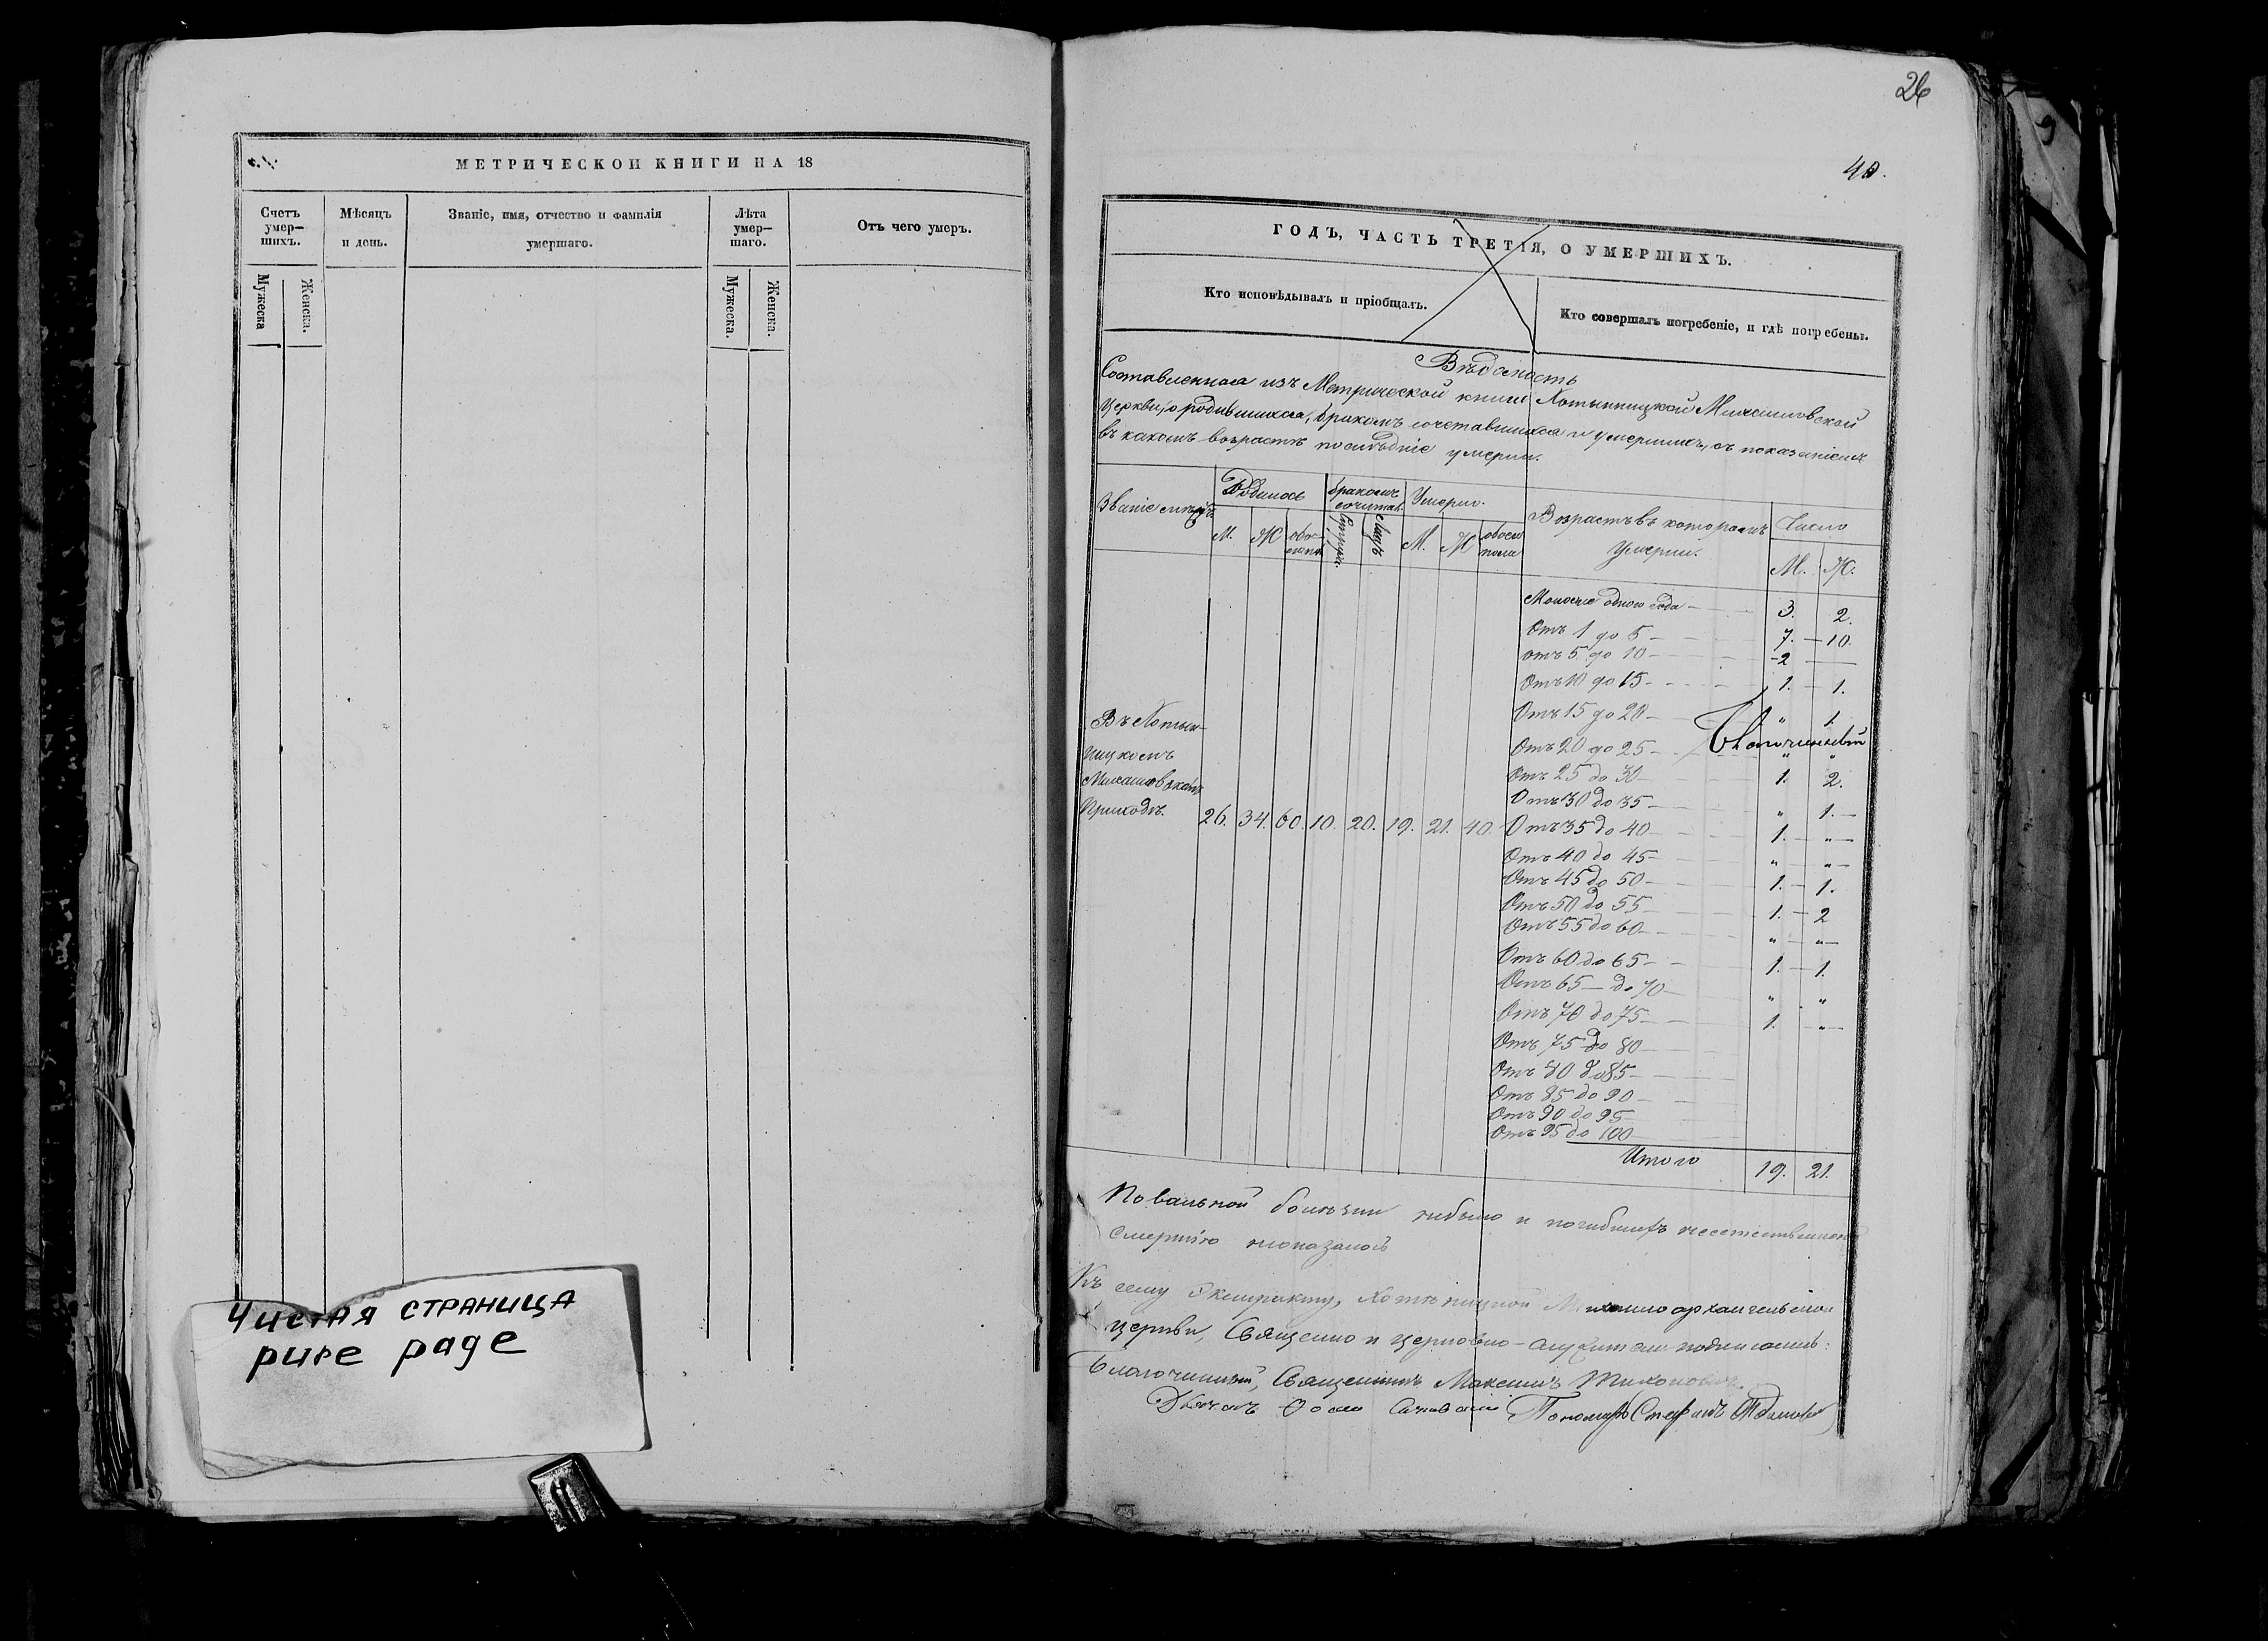 МЕТРИЧЕСКОЙ КНИГИ НА 18
Счетъ умер-
шихъ.
Мѣсяцъ
и день.
Званіе, имя, отчество и фамилія
умершаго.
Лѣта
умер-
шаго.
Отъ чего умеръ.
Мужеска
Женска.
Мужеска.
Женска.
Чистая страница
pure page
26
40.
ГОДЪ, ЧАСТЬ ТРЕТІЯ, О УМЕРШИХЪ.
Кто исповѣдывалъ и пріобщалъ.
Кто совершалъ погребеніе, и гдѣ погребены.
Вѣдомость
Составленная изъ Метрической книги Хотыницкой Михайловской
Церкви, о родившихся, бракомъ сочетавшихся и умершихъ, съ показаніемъ
въ какомъ возрастѣ послѣдніе умерли.
Званіе
Родилось
бракомъ
сочитал.
Умерло.
Возрастъ въ которомъ
умерли.
Число
М. Ж М. Ж обоего
пола
М. Ж.
Въ Хотын-
ицкомъ
Михайловском
Приходѣ. 26. 34. 60. 10. 20. 19. 21. 40.
Моложе одного года 3. 2.
Отъ 1 до 5 7. 10.
отъ 5 до 10 2
Отъ 10 до 15 1. 1.
Отъ 15 до 20 " 1.
Отъ 20 до 25 " "
Благочинный
Отъ 25 до 30 1. 2.
Отъ 30 до 35 " 1.
Отъ 35 до 40 1. "
Отъ 40 до 45 " "
Отъ 45 до 50 1. 1.
Отъ 50 до 55 1. 2
Отъ 55 до 60 " "
Отъ 60 до 65 1. 1.
Отъ 65 до 70 " "
Отъ 70 до 75 1. "
Отъ 75 до 80
Отъ 80 до 85
Отъ 85 до 90
Отъ 90 до 95
Отъ 95 до 100
Итого 19. 21.
Повальной болѣзни небыло и погибшихъ неестественною
смертію неоказалось
Къ сему Экстракту, Хотыницкой Михаило архангельской
церкви, Священно и церковно-служители подписались:
Благочинный, Священникъ Максимъ Тихонович
Дьячекъ Ѳома Пономарь Стефанъ